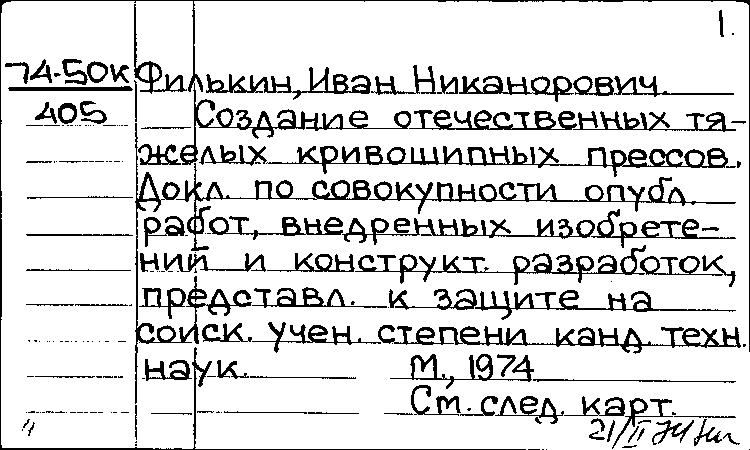 1.
74-50к Филькин, Иван Никанорович.
405 Создание отечественных тя-
желых кривошипных прессов.
Докл. по совокупности опубл.
работ, внедренных изобрете-
ний и конструкт. разработок,
представл. к защите на
соиск. учен. степени канд. техн.
наук. М., 1974
См. след. карт.
21/II 74